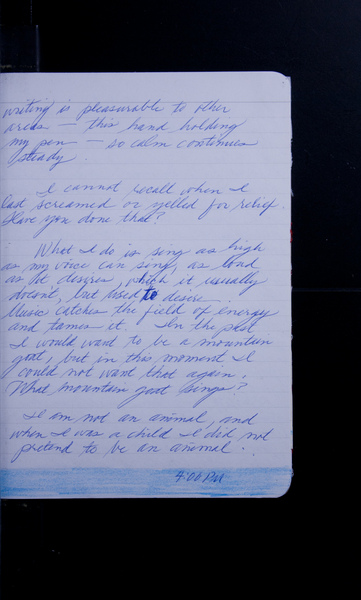 writing is pleasurable to other
areas — this hand holding
my pen — so calm continues
steady.
I cannot recall when I
last screamed or yelled for relief.
Have you done that?
What I do is sing as high
as my voice can sing, as loud
as it desires, which it usually
doesn't, but used to desire.
Music catches the field of energy
and tames it. In the past
I would want to be a mountain
goat, but in this moment I
could not want that again.
What mountain goat sings?
I am not an animal, and
when I was a child I did not
pretend to be an animal.
4:06 PM